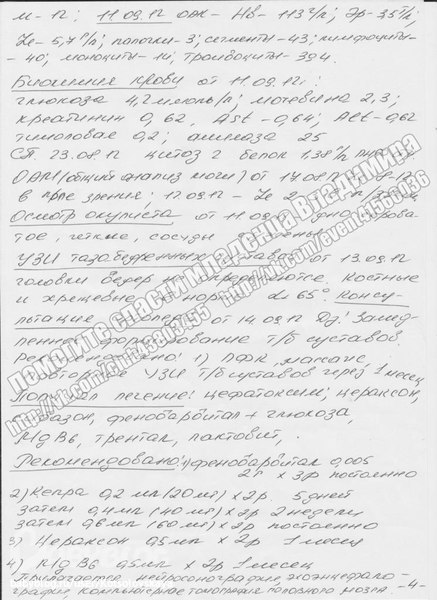 м-12; 11.09.12 ОАК- Hb-113 г/л; Эр-3,5 Т/л;
Le-5,7 г/л; палочки-3; сегменты-43; лимфоциты-
-40; моноциты-14; тромбоциты-394.
Биохимия крови от 11.09.12г.:
глюкоза 4,2 ммоль/л; мочевина 2,3;
креатинин 0,62, Ast-0,64; Alt-0,62
тимоловая 0,2; амилаза 25
СП 23.08.12 цитоз 2 белок 1,38 г/л
ОАМ (общий анализ мочи) от 14.08
в п/зре зрения; 12.09.12- Le 2
Осмотр окулиста от 11.09
тое, четкие, сосуды
УЗИ тазобедренных суставов от 13.09.12
головки бедер определяются. Костные
и хрящевые норм L 65° Консу-
льтация от 14.09.12 Ds: Замед-
ленное формирование т/б суставов.
Рекомендовано: 1) ЛФК, массаж,
повторное УЗИ т/б суставов через 1 месяц
Получал лечение: цефотоксим; цераксон,
фенобарбитал + глюкоза,
MgB6, трентал, лактовит, .
Рекомендовано: 1) фенобарбитал 0,005
x 3р постоянно
2) Кепра 0,2 мл (20 мг) x 2р 5 дней
затем 0,4 мл (40 мг) x 2р 2 недели
затем 0,6 мл (60 мг) x 2р постоянно
3) Цераксон 0,5 мл x 2р 1 месяц
4) MgB6 0,5 мл x 2р 1 месяц
Прилагается нейросонография, эхоэнцефало-
графия, компьютерная томография головного мозга. -4-
ПОМОГИТЕ СПАСТИ МЛАДЕНЦА ВЛАДИМИРА
http://vk.com/club43803455 http://vk.com/event41566036